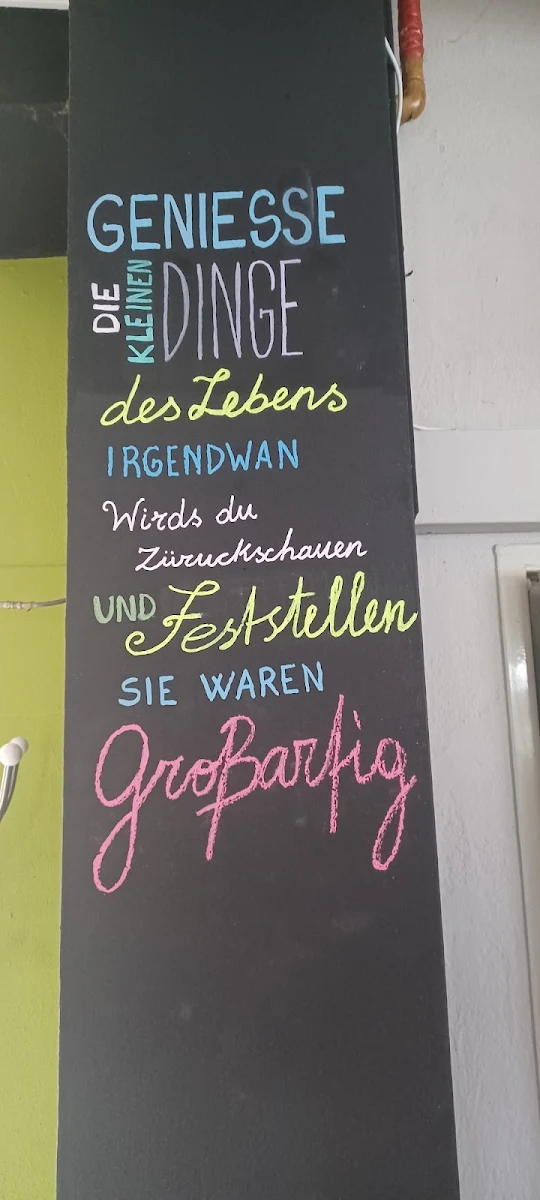 GENIESSE
DIE KLEINEN DINGE
des Lebens
IRGENDWAN
Wirds du
Züruckschauen
UND Feststellen
SIE WAREN
Großartig